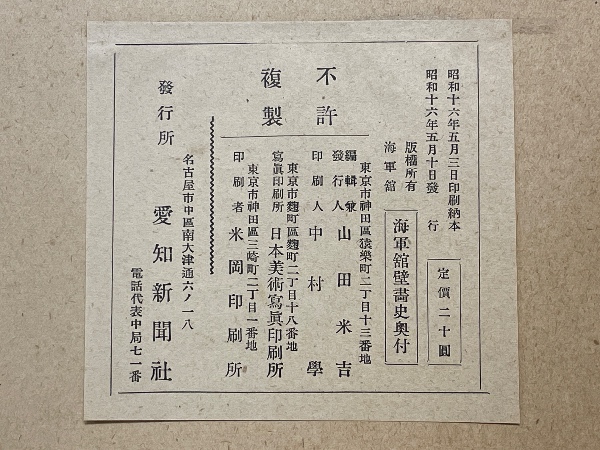 昭和十六年五月三日印刷納本
昭和十六年五月十日發行
定價二十圓
版權所有
海軍館
海軍舘壁畵史奥付
不許
複製
東京市神田區猿樂町二丁目十三番地
編輯兼
發行人 山田米吉
印刷人 中村學
東京市麴町區麴町二丁目十八番地
寫眞印刷所 日本美術寫眞印刷所
東京市神田區三崎町二丁目一番地
印刷者 米岡印刷所
發行所
名古屋市中區南大津通六ノ一八
愛知新聞社
電話代表中局七一番